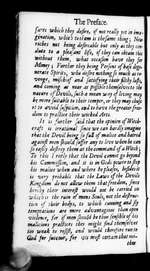 The Preface.
sures which they desire, if not really yet in ima-
gination, which to them is the same thing; Now
riches not being desirable but only as they con-
duce to a pleasant life, if they can obtain this
without them, what occasion have they for
Money; Farther they being Persons of bad, dege-
nerate Spirits, who desire nothing so much as re-
venge, mischief and satisfying their filthy lusts,
and coming as near as possible themselves to the
nature of Devils, such a mean way of living may
be more suitable to their temper, or they may chuse
it to avoid suspicion, and to have the greater free-
dom to practice their wicked Arts.
It is further said that the opinion of Witch-
craft is irrational since we can hardly imagine
that the Devil being so full of malice and hatred
against men should suffer any to live when he can
so easily destroy them at the command of a Witch;
To this I reply that the Devil cannot go beyond
his Commission, and it is in God's power to stop
his malice when and where he pleases, besides it
is very probable that the Laws of the Devils
Kingdom do not allow them that freedom, since
thereby their interest would not be carried on
which is the ruin of mens Souls, not the destruc-
tion of their bodies, to which cunning and sly
temptations are more advantagious than open
violence, for if men should be too sensible of his
malicious practices they might find themselves
too weak to resist, and would therefore run to
God for succour, for 'tis most certain that men